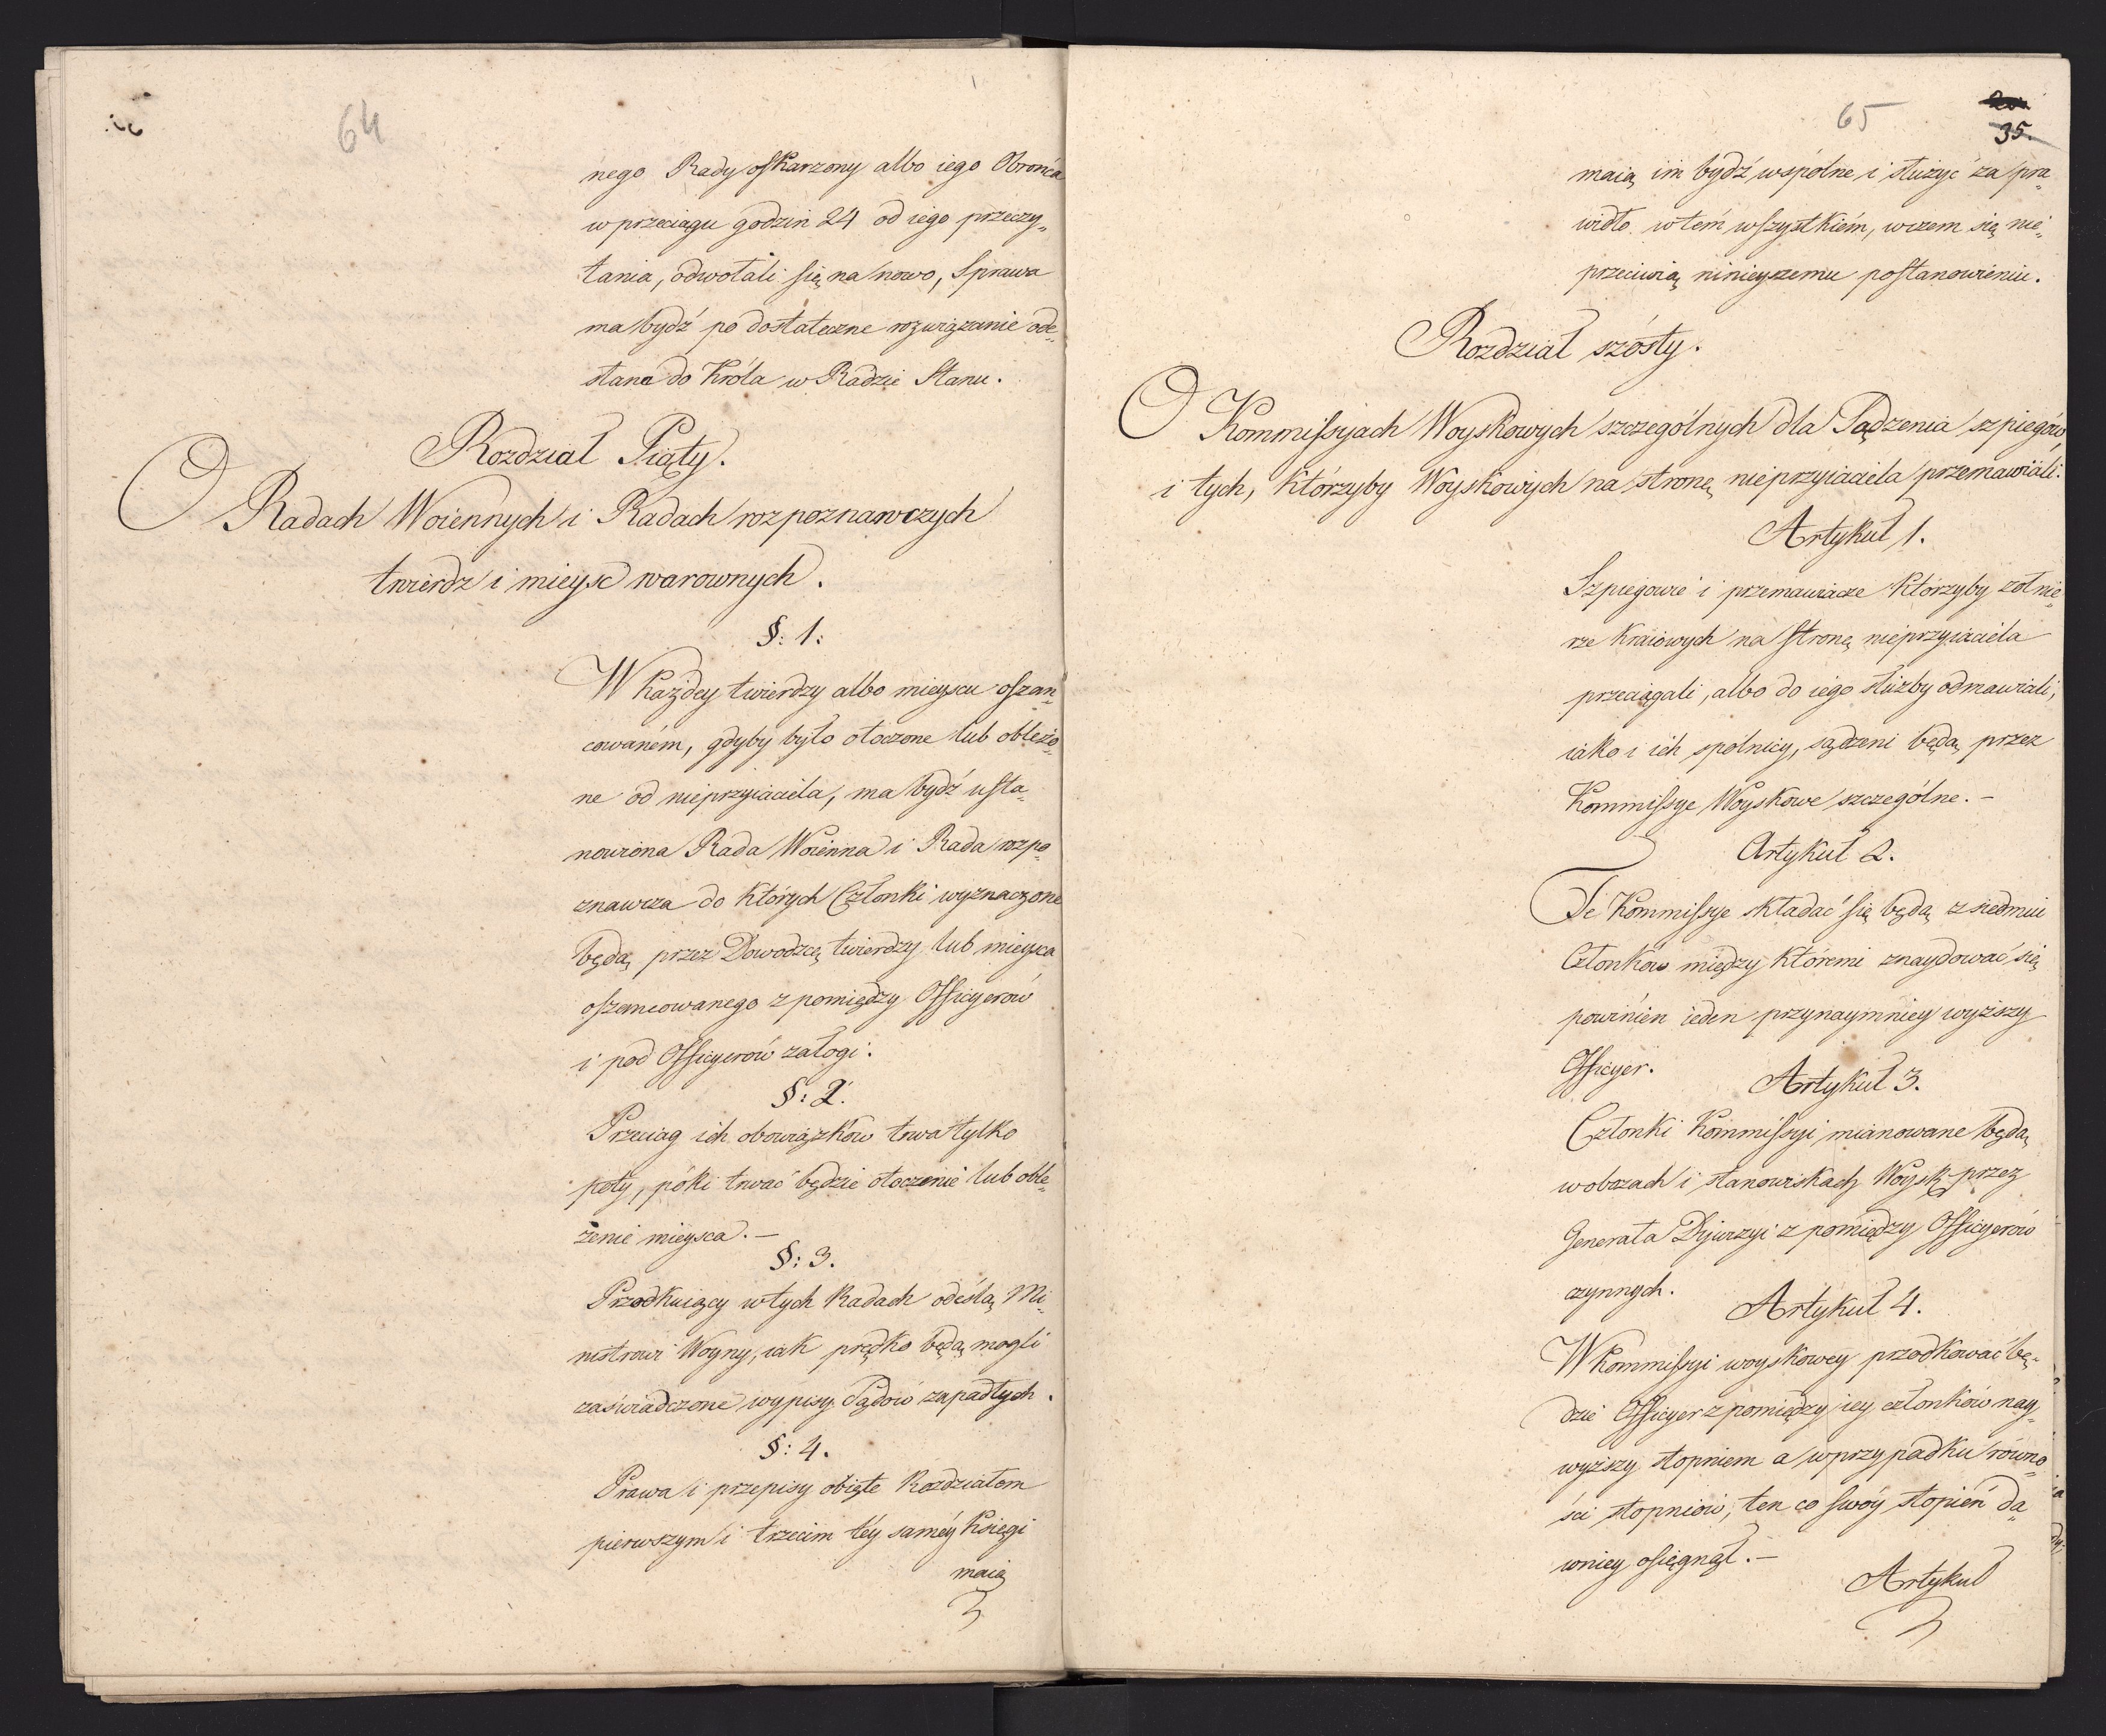 64
nego Rady oskarzony albo iego Obrońca
w przeciągu godzin 24 od iego przeczy„
tania, odwołali się na nowo, Sprawa
ma bydź po dostateczne rozwiązanie ode„
słana do Króla w Radzie Stanu.
Rozdział Piąty.
O Radach Woiennych i Radach rozpoznawczych
twierdz i mieysc warownych.
§: 1:
W każdey twierdzy albo mieyscu oszan„
cowanem, gdyby było otoczone lub oblężo„
ne od nieprzyiaciela, ma bydź usta„
nowiona Rada Woienna i Rada rozpo„
znawcza do których Członki wyznaczone
będą przez Dowodzcę twierdzy lub mieysca
oszancowanego z pomiędzy Officyerów
i pod Officyerów załogi.
§: 2.
Przeciąg ich obowiązków trwa tylko
poty, póki trwać będzie otoczenie lub oblę„
żenie mieysca. —
§: 3.
Przodkuiący w tych Radach odeślą Mi„
nistrowi Woyny, iak prędko będą mogli
zaświadczone wypisy Sądów zapadłych.
§: 4.
Prawa i przepisy obięte Rozdziałem
pierwszym i trzecim téy saméy Księgi
maią
65
35.
maią im bydź wspólne i służyć za pra„
widło w tém wszystkiém, w czem się nie„
przeciwią ninieyszemu postanowieniu.
Rozdział szósty.
O Kommissyach Woyskowych szczególnych dla Sądzenia szpiegów
i tych, którzyby Woyskowych na stronę nieprzyiaciela przemawiali.
Artykuł 1.
Szpiegowie i przemawiacze którzyby żołnie„
rze kraiowych na stronę nieprzyiaciela
przeciągali, albo do iego służby odmawiali,
iako i ich spólnicy, sądzeni będą przez
Kommissye Woyskowe szczególne. —
Artykuł 2.
Te Kommissye składać się będą z siedmiu
Członków między któremi znaydować się
powinien ieden przynaymniey wyższy
Officyer.
Artykuł 3.
Członki Kommissyi mianowane będą
w obozach i stanowiskach Woysk przez
Generała Dywizyi z pomiędzy Officyerów
czynnych.
Artykuł 4.
W Kommissyi woyskowey przodkować bę„
dzie Officyer z pomiędzy iey członków nay„
wyższy stopniem a w przypadku równo„
ści stopniów, ten co swóy stopień da„
wniey osięgnął. —
Artykuł